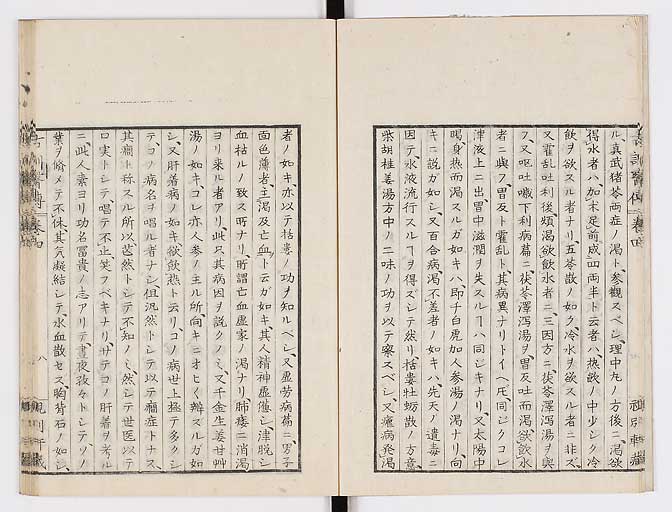 ル、真武猪苓両症ノ渇ト参観スベシ、理中丸ノ方後ニ、渇欲
得水者ハ、加朮足前成四両半ト云者ハ、熱飲ノ中少シク冷
飲ヲ欲スル者ナリ、五苓散ノ如ク、冷水ヲ欲スル者ニ非ズ、
又霍乱吐利後煩渇、欲飲水者ニ、三因方ニ、茯苓澤瀉湯ヲ與
フ、又嘔吐噦下利病篇ニ、茯苓澤瀉湯ヲ、胃反吐而渇、欲飲水
者ニ與フ、胃反ト霍乱ト、其病異ナリトイヘ𪜈、同ジクコレ
津液上ニ出、胃中滋潤ヲ失スルヿハ同ジキナリ、又太陽中
暍、身熱而渇スルガ如キハ、即チ白虎加人参湯ノ渇ナリ、向
キニ説ガ如シ、又百合病、渇不差者ノ如キハ、先天ノ遺毒ニ
因テ、水液流行スルヿヲ得ズ、シテ然リ、括蔞牡蛎散ノ方意、
柴胡桂姜湯方中ノ二味ノ功ヲ以テ察スベシ、又瘧病発渇
者ノ如キ、亦以テ括蔞ノ功ヲ知ルベシ、又虚労病篇ニ、男子
面色薄者、主渇及亡血ト云ガ如キ、其人精神虚憊シ、津脱シ
血枯ルノ致ス所ナリ、所謂亡血虚家ノ渇ナリ、肺痿ニ消渇
ヨリ来ル者アリ、此只其病因ヲ説クノミ、又千金生姜甘艸
湯ノ如キ、コレ亦人参ノ主ル所、向キニオヒく辨スルガ如
シ、又肝着病ノ如キ、欲飲熱ト云リ、コノ病世上極テ多クシ
テ、コノ病名ヲ唱ル者ナシ、但汎然トシテ以テ癇症トナス、
其癇ト称スル所以、茫然トシテ不知ノミ、然シテ世医以テ
口実トシテ唱テ不止、笑フベキナリ、サテコノ肝着ヲ考ル
ニ、此人素ヨリ功名冨貴ノ志アリテ、晝夜孜々トシテ、ソノ
業ヲ脩メテ不休、其気凝結シテ、水血散セズ、胸背石ノ如シ、
八